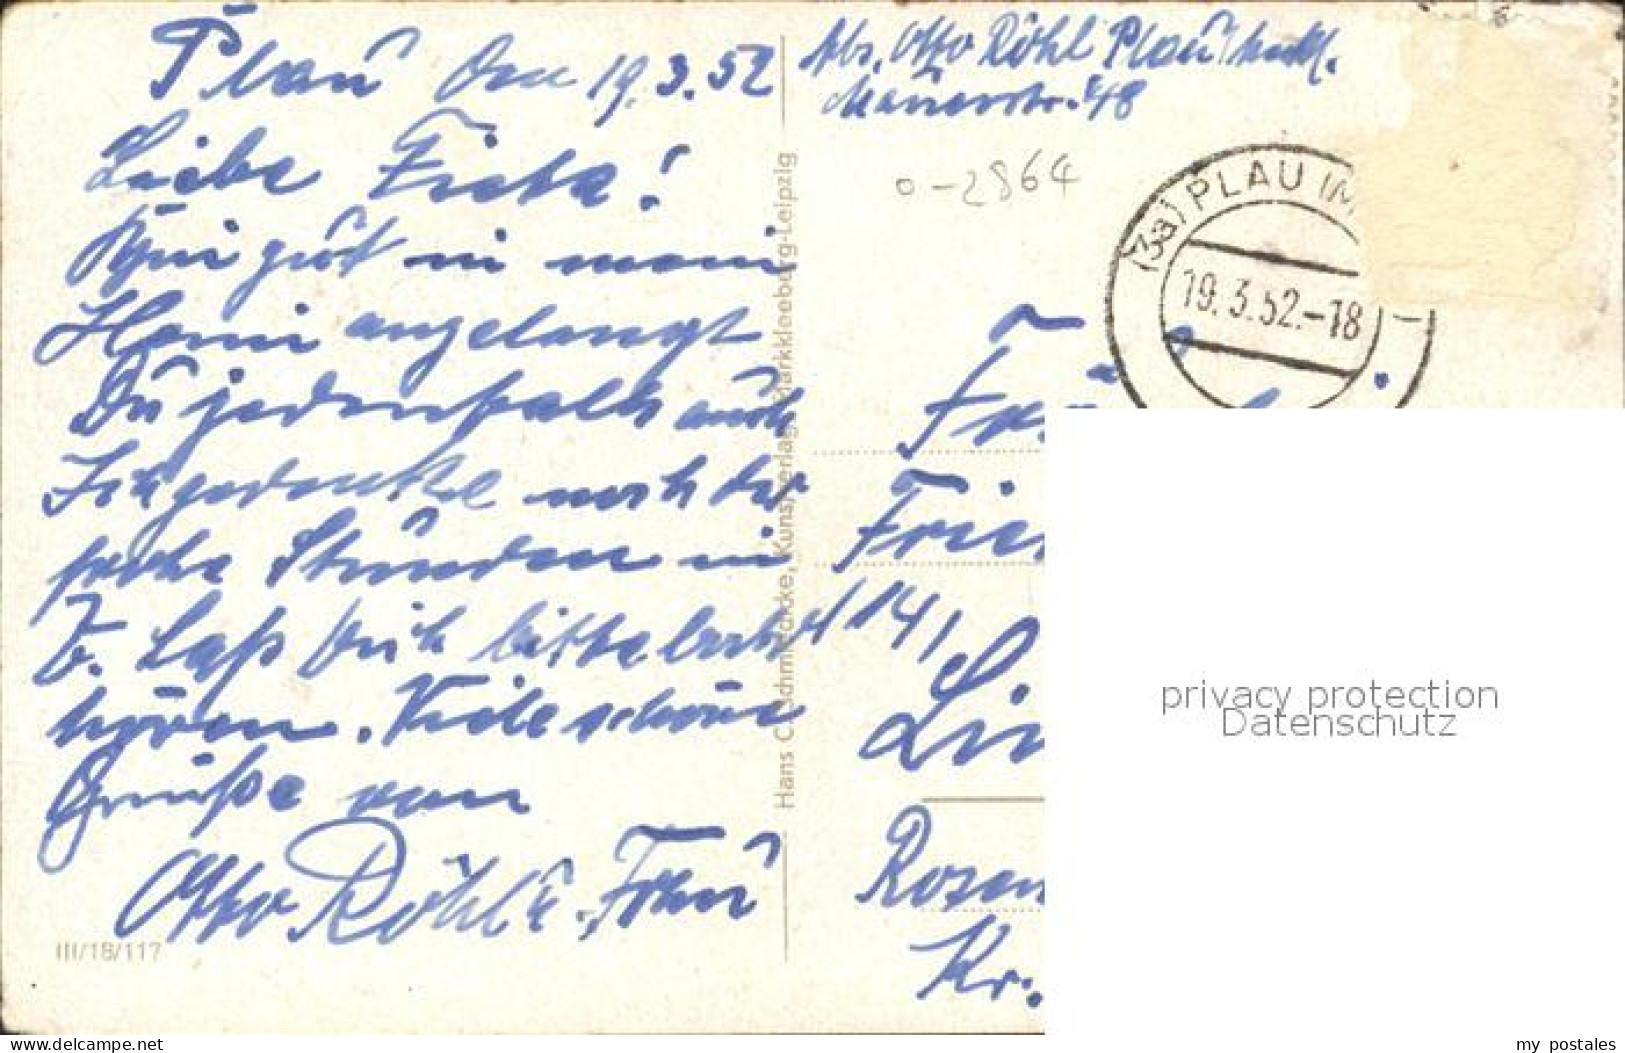 Plau den 19.3.52
Liebe Frieda!
Bin gut in mein
Heim angelangt
Du jedenfalls auch
Ich gedenke noch der
frohe Stunden in
B. Laß Dich bitte bald
hören. Viele schöne
Grüße von
Otto Röhl u. Frau
III/18/117
Hans C. Schmiedicke, Kunstverlag, Markkleeberg-Leipzig
Abs. Otto Röhl Plau/Meckl.
Mauerstr. 48
0-2864
(3a) PLAU IM
19.3.52.-18
(14)
Rosen
Kr.
privacy protection
Datenschutz
my postales
www.delcampe.net